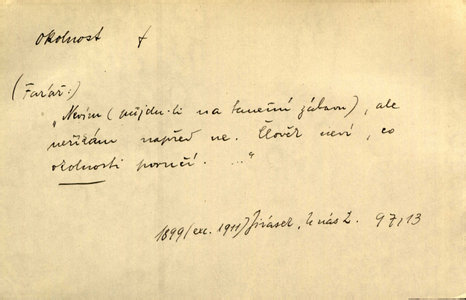 okolnost f
(Farář:)
"Nevím (půjdu-li na taneční zábavu), ale
neříkám napřed ne. Člověk neví, co
okolnosti poručí. ..."
1899 (exc. 1911) Jirásek, U nás 2. 97,13